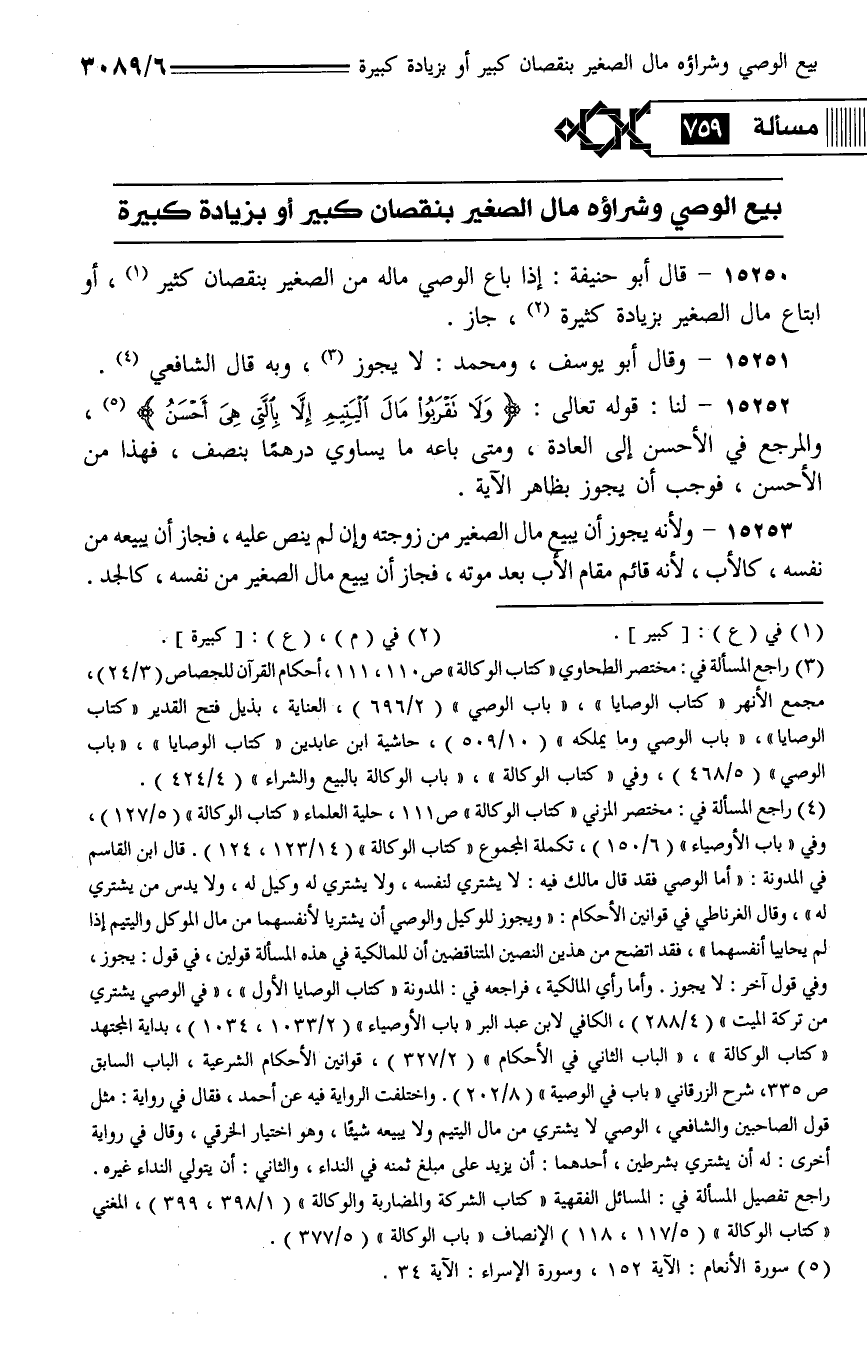 بيع الوصي وشراؤه مال الصغير بنقصان كبير أو بزيادة كبيرة ٣٠٨٩/٦
مسألة ٧٥٩
بيع الوصي وشراؤه مال الصغير بنقصان كبير أو بزيادة كبيرة
١٥٢٥٠ – قال أبو حنيفة : إذا باع الوصي ماله من الصغير بنقصان كثير (١) ، أو
ابتاع مال الصغير بزيادة كثيرة (٢) ، جاز .
١٥٢٥١ – وقال أبو يوسف ، ومحمد : لا يجوز (٣) ، وبه قال الشافعي (٤) .
١٥٢٥٢ – لنا : قوله تعالى : ﴿ وَلَا نَقْرَبُوا۟ مَالَ ٱلْيَتِيمِ إِلَّا بِٱلَّتِى هِىَ أَحْسَنُ ﴾ (٥) ،
والمرجع في الأحسن إلى العادة ، ومتى باعه ما يساوي درهمًا بنصف ، فهذا من
الأحسن ، فوجب أن يجوز بظاهر الآية .
١٥٢٥٣ – ولأنه يجوز أن يبيع مال الصغير من زوجته وإن لم ينص عليه ، فجاز أن يبيعه من
نفسه ، كالأب ، لأنه قائم مقام الأب بعد موته ، فجاز أن يبيع مال الصغير من نفسه ، كالجد .
(١) في ( ع ) : [ كبير ] . (٢) في ( م ) ، ( ع ) : [ كبيرة ] .
(٣) راجع المسألة في : مختصر الطحاوي « كتاب الوكالة » ص١١٠ ، ١١١ ، أحكام القرآن للجصاص ( ٢٤/٣ ) ،
مجمع الأنهر « كتاب الوصايا » ، « باب الوصي » ( ٦٩٦/٢ ) ، العناية ، بذيل فتح القدير « كتاب
الوصايا » ، « باب الوصي وما يملكه » ( ٥٠٩/١٠ ) ، حاشية ابن عابدين « كتاب الوصايا » ، « باب
الوصي » ( ٤٦٨/٥ ) ، وفي « كتاب الوكالة » ، « باب الوكالة بالبيع والشراء » ( ٤٢٤/٤ ) .
(٤) راجع المسألة في : مختصر المزني « كتاب الوكالة » ص١١١ ، حلية العلماء « كتاب الوكالة » ( ١٢٧/٥ ) ،
وفي « باب الأوصياء » ( ١٥٠/٦ ) ، تكملة المجموع « كتاب الوكالة » ( ١٢٣/١٤ ، ١٢٤ ) . قال ابن القاسم
في المدونة : « أما الوصي فقد قال مالك فيه : لا يشتري لنفسه ، ولا يشتري له وكيل له ، ولا يدس من يشتري
له » ، وقال الغرناطي في قوانين الأحكام : « ويجوز للوكيل والوصي أن يشتريا لأنفسهما من مال الموكل واليتيم إذا
لم يحابيا أنفسهما » ، فقد اتضح من هذين النصين المتناقضين أن للمالكية في هذه المسألة قولين ، في قول : يجوز ،
وفي قول آخر : لا يجوز . وأما رأي المالكية ، فراجعه في : المدونة « كتاب الوصايا الأول » ، « في الوصي يشتري
من تركة الميت » ( ٢٨٨/٤ ) ، الكافي لابن عبد البر « باب الأوصياء » ( ١٠٣٣/٢ ، ١٠٣٤ ) ، بداية المجتهد
« كتاب الوكالة » ، « الباب الثاني في الأحكام » ( ٣٢٧/٢ ) ، قوانين الأحكام الشرعية ، الباب السابق
ص ٣٣٥ ، شرح الزرقاني « باب في الوصية » ( ٢٠٢/٨ ) . واختلفت الرواية فيه عن أحمد ، فقال في رواية : مثل
قول الصاحبين والشافعي ، الوصي لا يشتري من مال اليتيم ولا يبيعه شيئًا ، وهو اختيار الخرقي ، وقال في رواية
أخرى : له أن يشتري بشرطين ، أحدهما : أن يزيد على مبلغ ثمنه في النداء ، والثاني : أن يتولي النداء غيره .
راجع تفصيل المسألة في : المسائل الفقهية « كتاب الشركة والمضاربة والوكالة » ( ٣٩٨/١ ، ٣٩٩ ) ، المغني
« كتاب الوكالة » ( ١١٧/٥ ، ١١٨ ) الإنصاف « باب الوكالة » ( ٣٧٧/٥ ) .
(٥) سورة الأنعام : الآية ١٥٢ ، وسورة الإسراء : الآية ٣٤ .